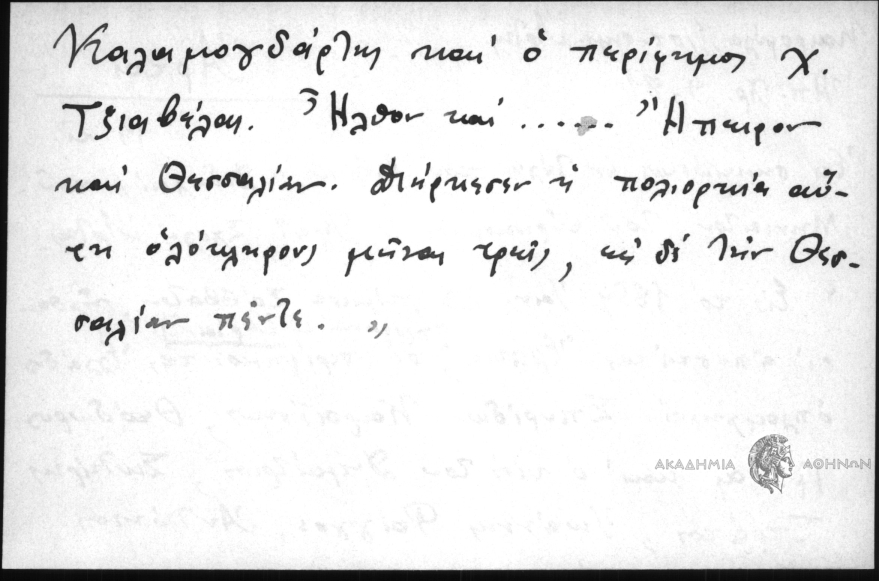 Καλαμογδάρτης καὶ ὁ περίφημος Χ.
Τζιαβέλας. Ἦλθον καὶ ...... Ἤπειρον
καὶ Θεσσαλίαν. Διήρκεσεν ἡ πολιορκία αὕ-
τη ὁλόκληρους μῆνας τρεῖς, εἰς δέ τὴν Θεσ-
σαλίαν πέντε. „
ΑΚΑΔΗΜΙΑ ΑΘΗΝΩΝ